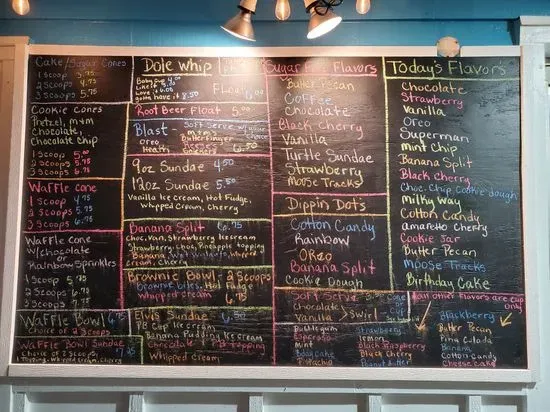 Cake/Sugar Cones
1 Scoop 3.75
2 Scoops 4.75
3 Scoops 5.75
Cookie Cones
Pretzel, m+m
Chocolate,
Chocolate Chip
1 Scoops 5.00
2 Scoops 5.75
3 Scoops 6.75
Waffle Cone
1 Scoop 4.75
2 Scoops 5.75
3 Scoops 6.75
Waffle Cone
w/chocolate
or
Rainbow Sprinkles
1 Scoop 5.75
2 Scoops
3 Scoops
Waffle Bowl 6.75
Choice of 2 Scoops
Waffle Bowl Sundae 7.75
Choice of 2 Scoops
Topping, Whipped Cream, Cherry
Dole Whip
Baby Cup 4.00
Like it
Love it 6.00
gotta have it 8.50
Float
6.50
Root Beer Float 5.00
Blast - Soft Serve w/your choice
Oreo m+m Butterfinger
Heath Reeses
Snickers 6.50
9oz Sundae 4.50
12oz Sundae 5.50
Vanilla Ice Cream, Hot Fudge,
Whipped Cream, Cherry
Banana Split 6.75
Choc, Van, Strawberry Ice cream
Strawberry, Choc, Pineapple topping
Banana, Wet Walnuts, Whipped
Cream, Cherry
Brownie Bowl - 2 Scoops
Brownie bites, Hot Fudge
Whipped Cream 6.75
Elvis Sundae 6.50
PB Cup Ice cream
Banana Pudding Ice cream
Chocolate + PB topping
Whipped cream
Sugar Free Flavors
Butter Pecan
Coffee
Chocolate
Black Cherry
Vanilla
Turtle Sundae
Strawberry
Moose Tracks
Dippin Dot's
Cotton Candy
Rainbow
Oreo
Banana Split
Cookie Dough
Soft Serve
Chocolate
Vanilla > Swirl
Cup
Bubblegum
Espresso
Mint
Pistachio
Strawberry
Lemon
Black Raspberry
Black Cherry
Peanut Butter
Today's Flavors
Chocolate
Strawberry
Vanilla
Oreo
Superman
Mint Chip
Banana Split
Black Cherry
Choc. Chip Cookie dough
Milky Way
Cotton Candy
amaretto Cherry
Cookie Jar
Butter Pecan
Moose Tracks
Birthday Cake
all other Flavors are cup
only
Blackberry
Butter Pecan
Pina Colada
Banana
Cotton Candy
Cheese Cake